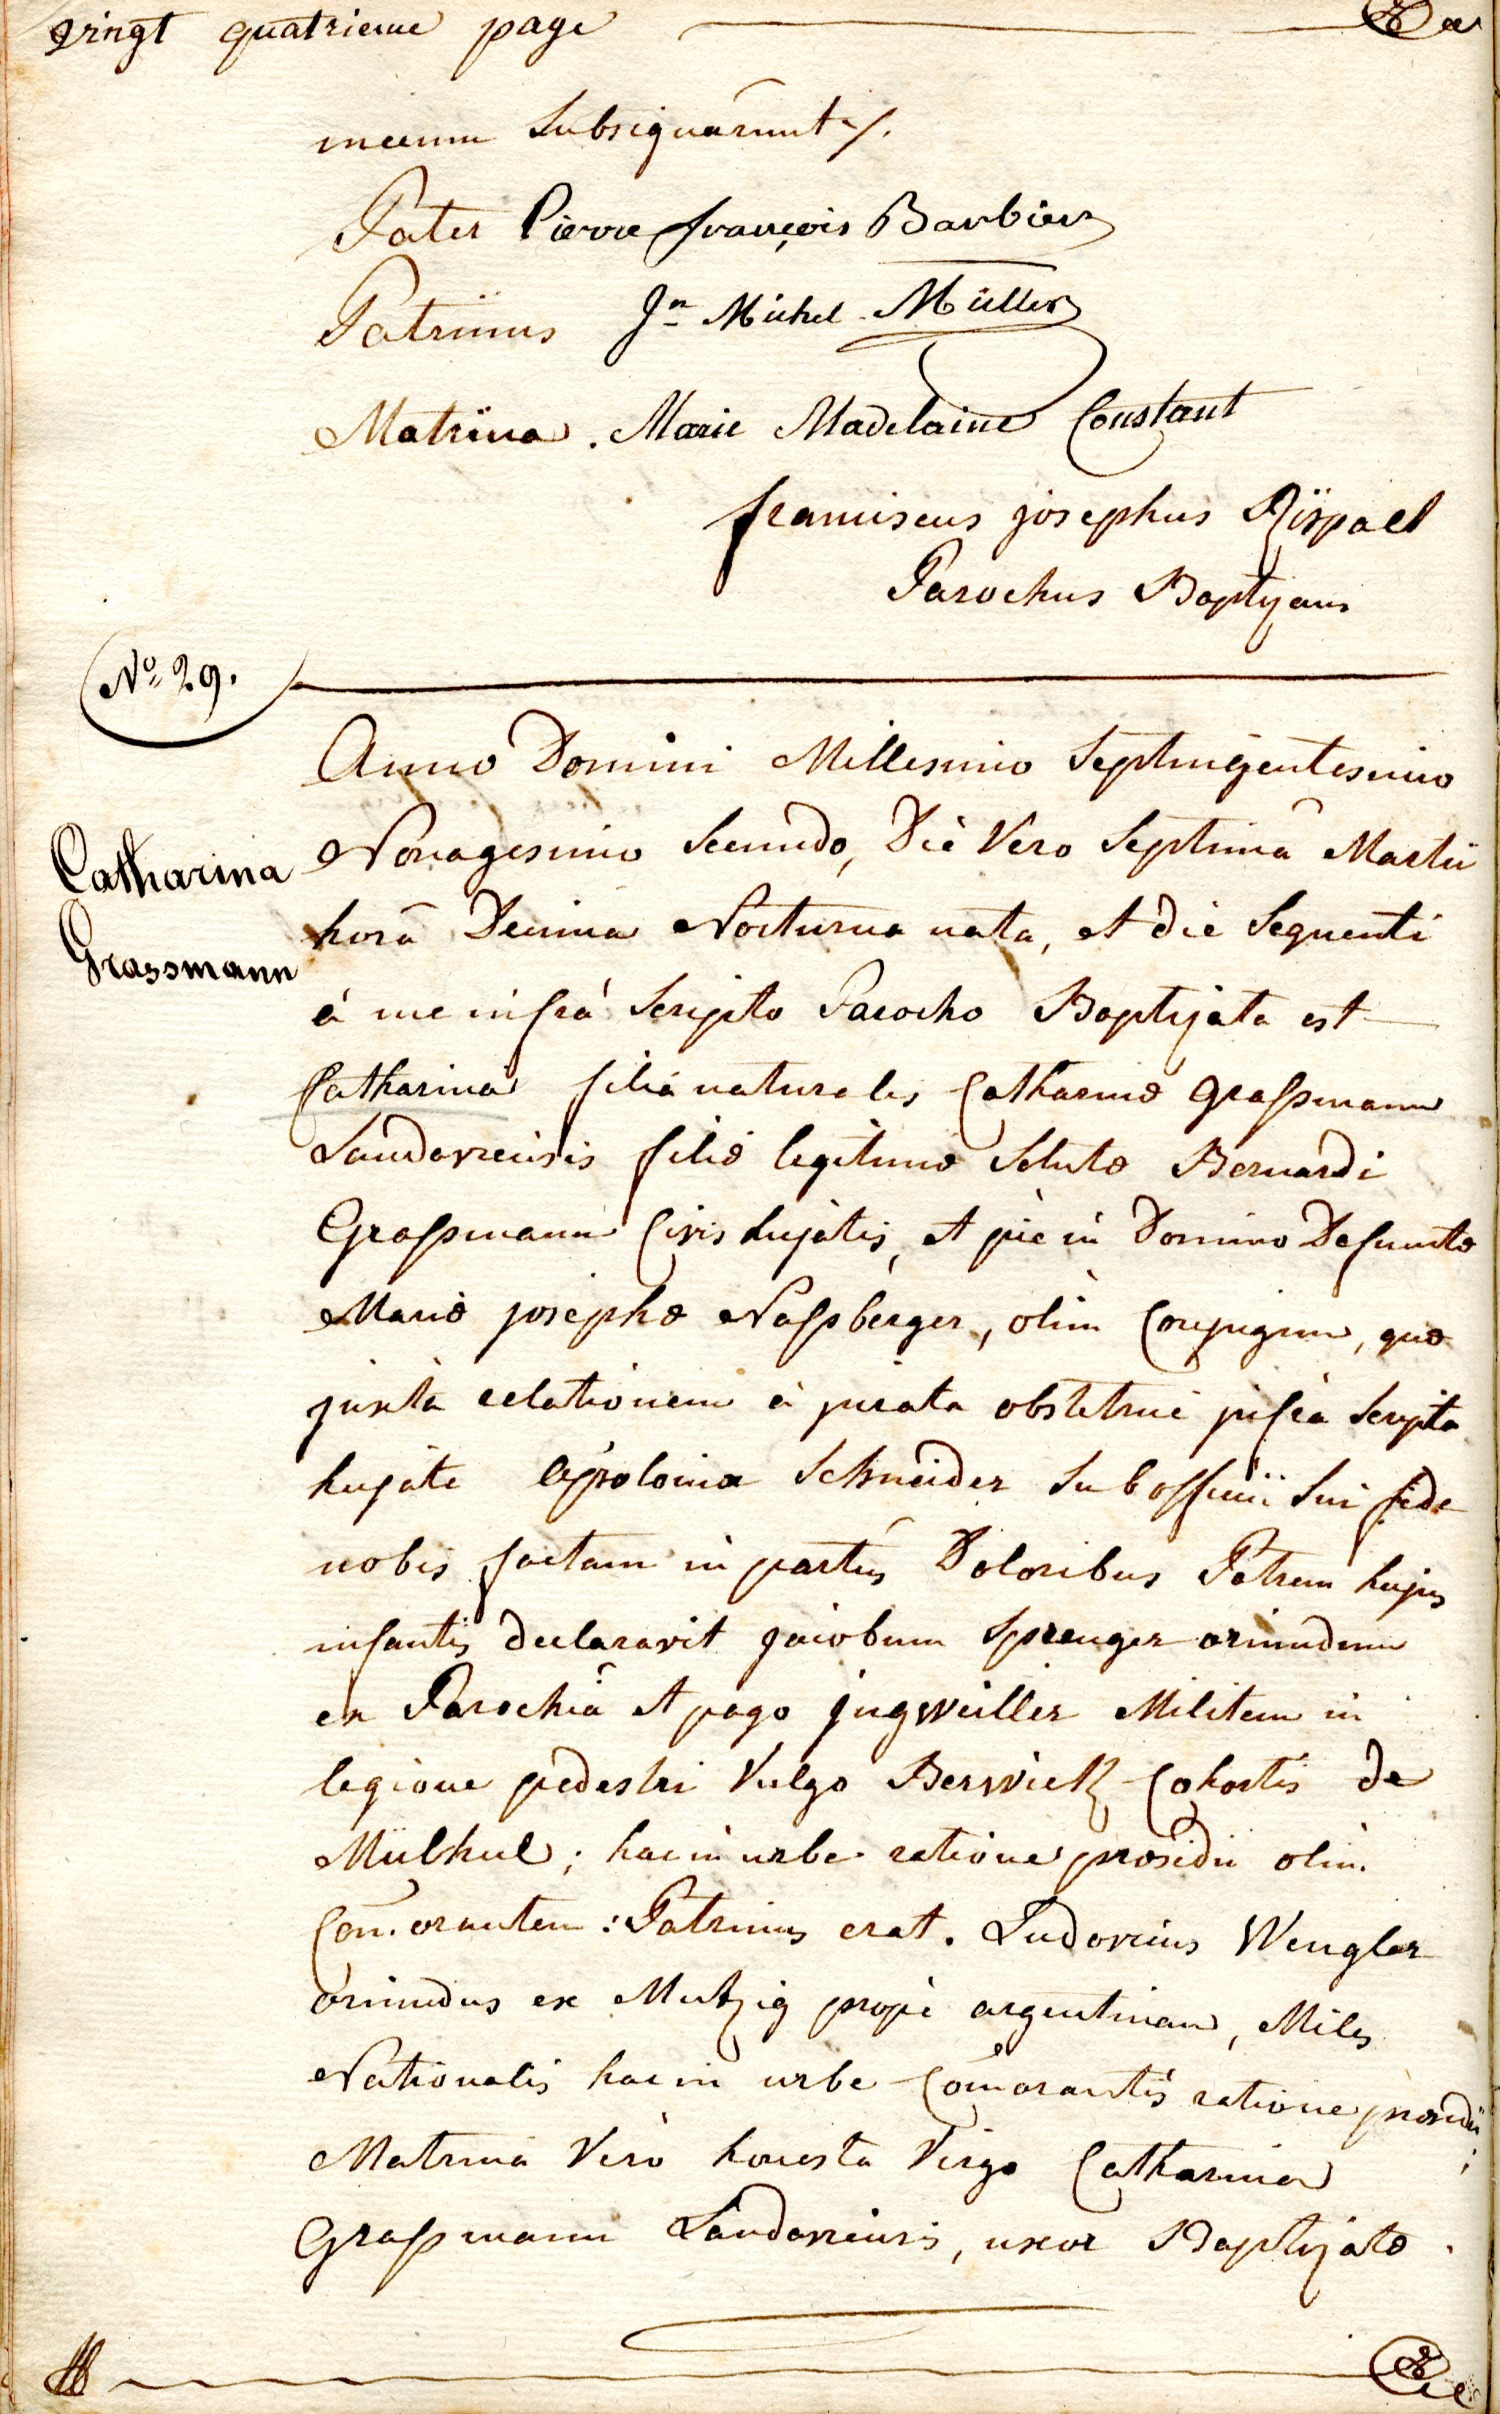 vingt quatrieme page
mecum subsignârunt ./.
Pater Pierre françois Barbier
Patrinus Jn Michel Müller
Matrina . Marie Madelaine Constant
franciscus josephus
Parochus Baptizans
No 29.
Anno Domini Millesimo Septingentesimo
Catharina
Grassmann
Nonagesimo Secundo, Die Vero Septimâ Martii
horâ Decima Nocturna nata, et die Sequenti
à me infrà Scripto Parocho Baptizata est
Catharina filia naturalis Catharinæ Graßmann
Landaviensis filiæ legitimæ Solutæ Bernardi
Graßmann Civis hujatis, et pie in Domino Defunctæ
Mariæ josephæ Naßberger, olim Conjugum, quæ
juxtà relationem à jurata obstetrice infra Scripta
hujate Apolonia Schneider Sub officii Sui fide
nobis factam in partûs Doloribus Patrem hujus
infantis declaravit jacobum Sprenger oriundum
ex Parochiâ et pago jngweiller Militem in
legione pedestri Vulgo Berwick Cohortis de
Mülhul; hac in urbe ratione præsidii olim
Com̄orantem : Patrinus erat . Ludovicus Wengler
oriundus ex Mutzig propè argentinam, Miles
Nationalis hac in urbe Com̄orantis ratione præsidii ;
Matrina Verò honesta Virgo Catharina
Graßmann Landaviensis, uxor Baptizatæ .